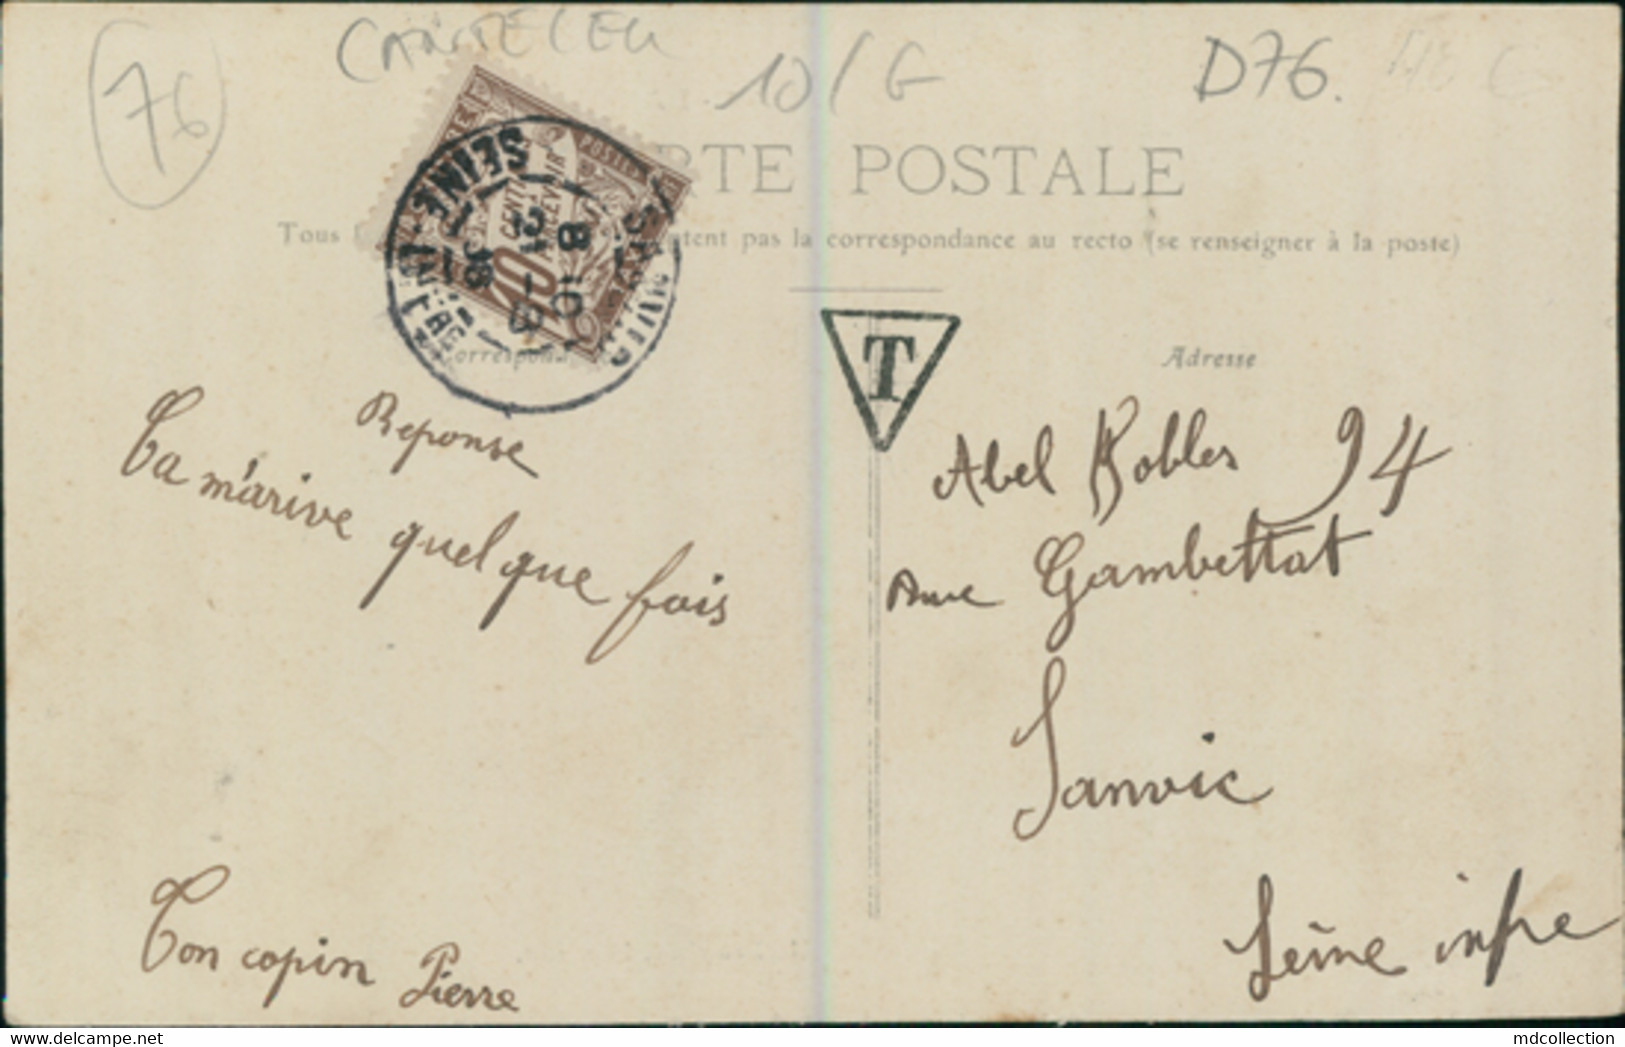 76
CANTELEU
10/G
D76.
CARTE POSTALE
Tous
tent pas la correspondance au recto (se renseigner à la poste)
10 CENT
SEINE-INFRE
8 10
21 - 3
Correspond
Adresse
T
Reponse
Ca m'arive quelque fois
Ton copin Pierre
Abel Robles 94
Rue Gambettat
Sanvic
Seine infre
mdcollection